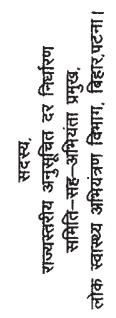 सदस्य,
राज्यस्तरीय अनुसूचित दर निर्धारण
समिति–सह–अभियंता प्रमुख,
लोक स्वास्थ्य अभियंत्रण विभाग, बिहार,पटना।